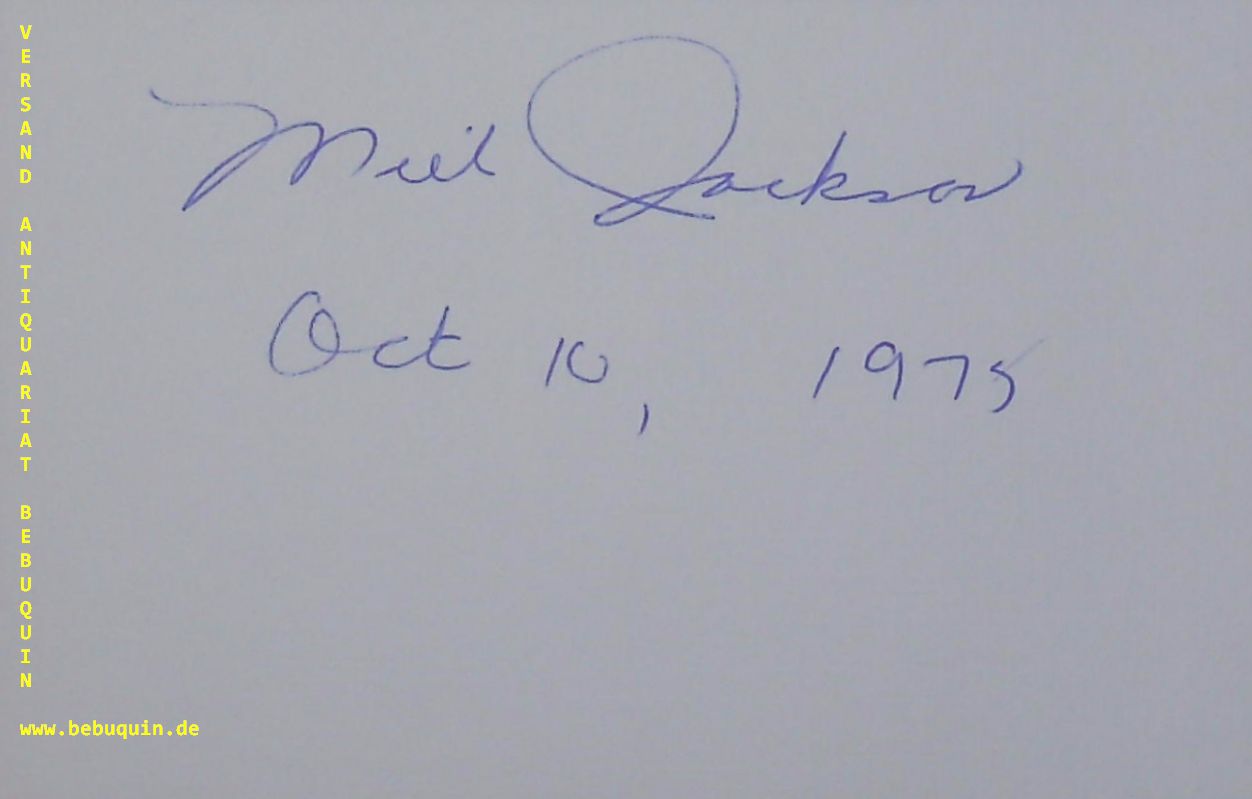 Milt Jackson
Oct 10, 1975
VERSAND ANTIQUARIAT BEBUQUIN
www.bebuquin.de